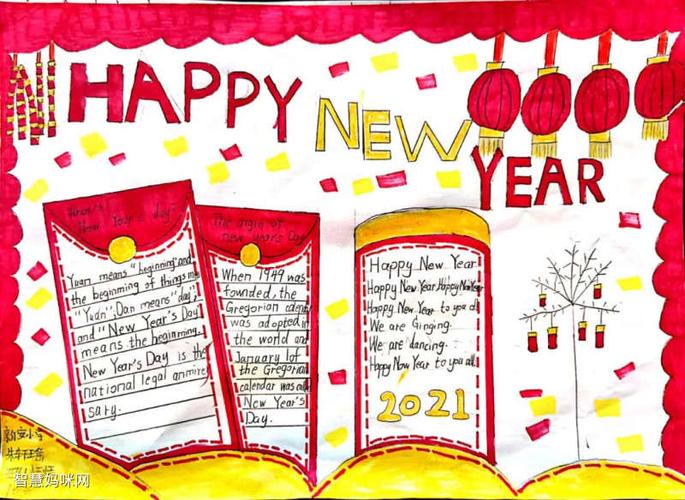 HAPPY
NEW
YEAR
New Year's day
Yuan means "beginning" and
the beginning of things
"Yuan"; Dan means "day";
and "New Year's Day
means the beginning.
New Year's Day is the
national legal
sary.
The origin of
new year's Day
When 1949 was
founded, the
Gregorian
was adopted in
the world and
January 1 of
the Gregorian
calendar was
New Year's
Day.
Happy New Year
Happy New Year, Happy New Year
Happy New Year to you all
We are Ginging.
We are dancing.
Happy New Year to you all
2021
智慧妈咪网